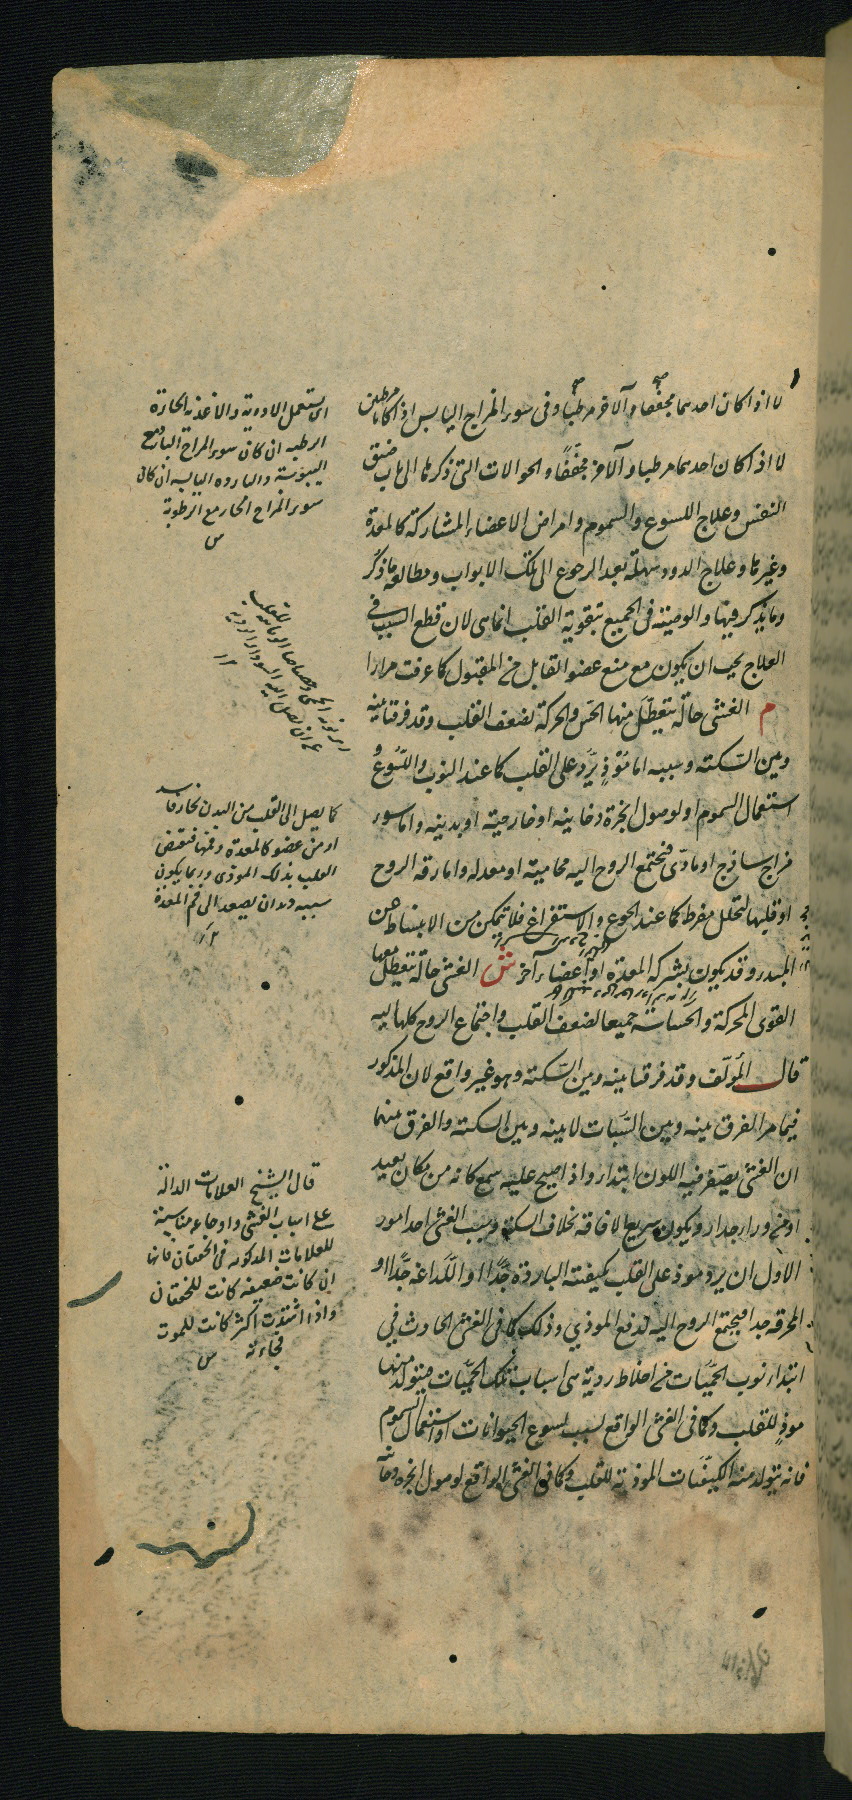 لا اذا كان احدهما مجففا والآخر مرطبا وفى سوء المزاج اليابس اذا كانا مرطبين
لا اذا كان احدهما مرطبا والآخر مجففًا والحوالات التى ذكرها الى باب ضيق
النفس وعلاج اللسوع والسموم وامراض الاعضاء المشاركة كالمعدة
وغيرها وعلاج الدود سهلة بعد الرجوع الى تلك الابواب ومطالعة ما ذكر
وما يذكر فيها والوصية فى الجميع بتقوية القلب انما هى لان قطع السبب فى
العلاج يجب ان يكون مع منع عضو القابل من المقبول كما عرفت مرارا
م الغشى حالة يتعطّل منها الحس والحركة لضعف القلب وقد فرقنا بينه
وبين السّكتة وسببه اما مُؤذٍ يرد على القلب كما عند النوب واللسوع و
استعمال السموم او لوصول ابخرة دخانية او خارجية او بدنية واما سوء
مزاج ساذج او مادّى فيجتمع الروح اليه محامية او معدله واما رقة الروح
او قلتها لتحلل مفرط كما عند الجوع والاستفراغ فلا تمكن من الانبساط عن
المبدء وقد يكون بشركة المعدة او اعضاء آخر ش الغشى حالة يتعطل معها
القوى المحركة والحساسة جميعا لضعف القلب واجتماع الروح كلها اليه
قال المؤلّف وقد فرقنا بينه وبين السّكتة وهو غير واقع لان المذكور
فيما مر الفرق بينه وبين السُبات لا بينه وبين السكتة والفرق بينهما
ان الغشى يصفر فيه اللون ابتداء واذا صيح عليه سمع كانه من مكان بعيد
او من وراء جدار ويكون سريع الافاقة بخلاف السكتة وسبب الغشى احد امور
الاول ان يرد موذ على القلب بكيفيته الباردة جدًّا او اللداغة جدًّا او
المحرقة جدا فيجتمع الروح اليه لدفع الموذي وذلك كما فى الغشى الحادث في
ابتداء نوب الحمّيات من اخلاط ردية هى اسباب تلك الحمّيات فيتولد منها
موذٍ للقلب وكما فى الغشى الواقع بسبب لسوع الحيوانات او استعمال السموم
فانه يتولد منه الكيفيات الموذية للقلب وكما فى الغشى الواقع لوصول ابخرة دخانية
اى يستعمل الادوية والاغذية الحارة
الرطبة ان كان سوء المزاج البارد مع
اليبوسة والباردة اليابسة ان كان
سوء المزاج الحار مع الرطوبة
س
كما يصل الى القلب من البدن بخار فاسد
او من عضو كالمعدة وفمها فينقبض
القلب بذلك الموذى وربما يكون
سببه ديدان يصعد الى فم المعدة
١٢
قال الشيخ العلامات الدالة
على اسباب الغشى واوجاعه مناسبة
للعلامات المذكورة فى الخفقان فانها
ان كانت ضعيفة كانت للخفقان
واذا اشتدت اكثر كانت للموت
فجاءة س